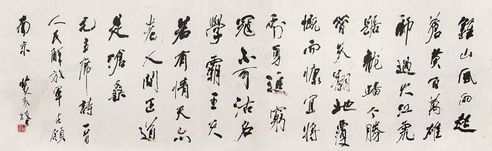 鍾山風雨起
蒼黄百萬雄
師過大江虎
踞龍蟠今勝
昔天翻地覆
慨而慷宜將
剩勇追窮
寇不可沽名
學霸王天
若有情天亦
老人間正道
是滄桑
毛主席詩一首
人民解放軍占領
南京